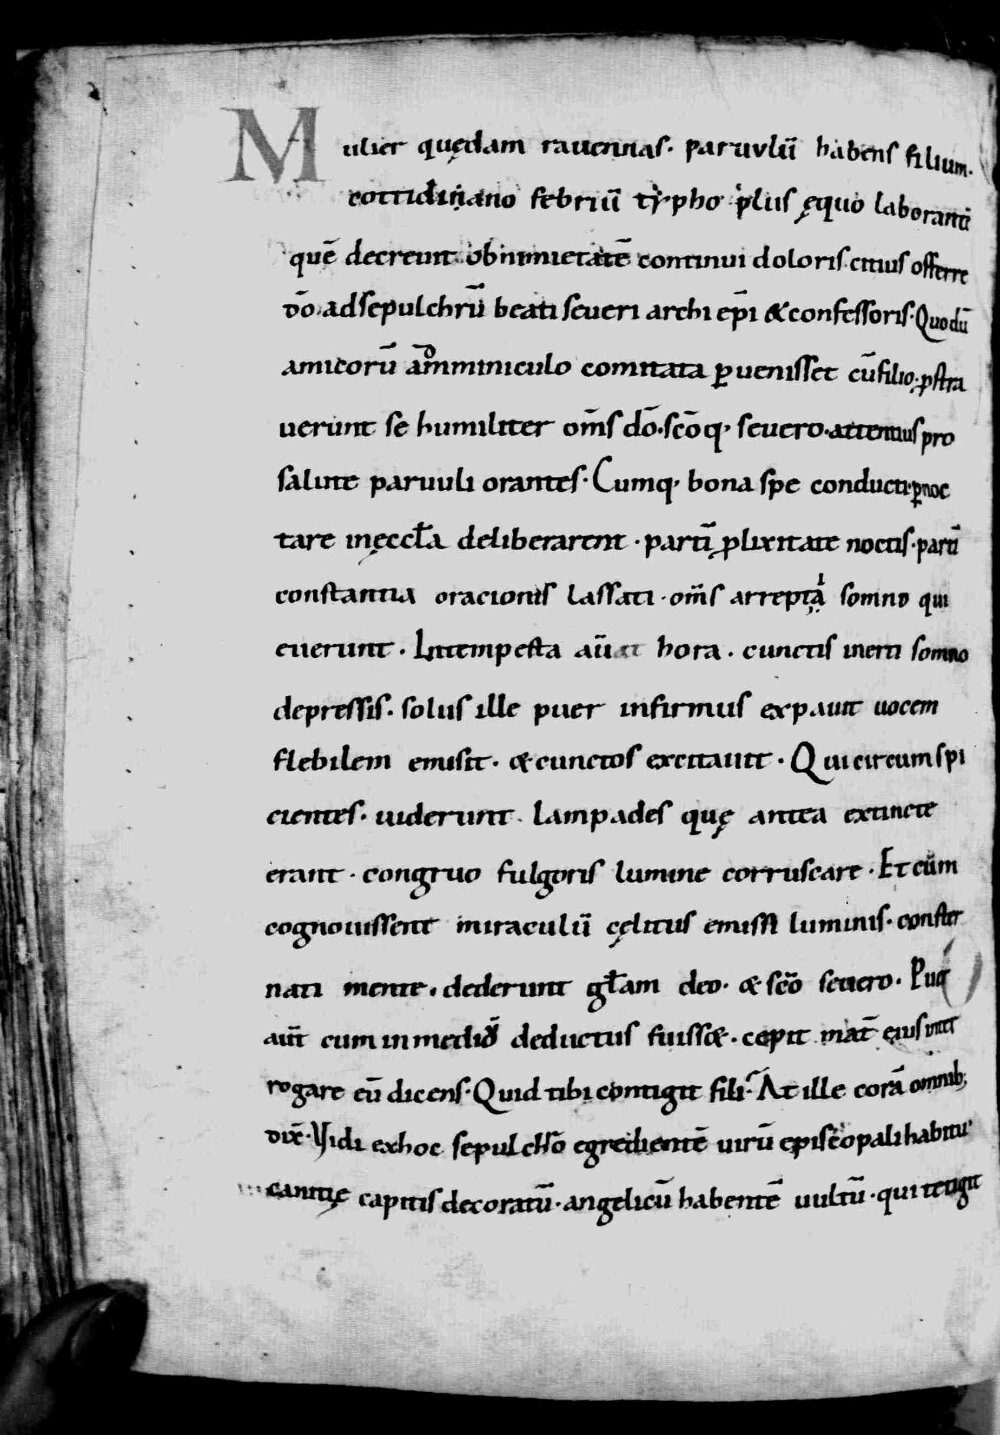 Mulier quędam rauennas· paruulū habens filium·
cottidiṇano febriū typho plus ęquo laborantē
quē decreuit ob nimietatē continui doloris citius offerre
dō· ad sepulchrū beati seueri archi ep̄i & confessoris· Quo dū
amicorū amminiculo comitata ꝑuenisset cū filio· ꝓstra
uerunt se humiliter om̄s dō· sc̄oq· seuero· attentius pro
salute paruuli orantes· Cumq· bona spe conducti· ꝑnoc
tare in ęccl̄a deliberarent· partī ꝓlixitate noctis· partī
constantia oracionis lassati· om̄s arrepti somno qui
euerunt· Intempesta aū hora· cunctis inerti somno
depressis· solus ille puer infirmus expauit uocem
flebilem emisit· & cunctos excitauit· Qui circumspi
cientes· uiderunt· lampades quę antea extincte
erant· congruo fulgoris lumine corruscare· Et cūm
cognouissent miraculū cęlitus emissi luminis· conster
nati mente· dederunt gl̄am deo· & sc̄o seuero· Puer
aūt cum in mediū deductus fuiss&· cepit mat̄ eius inter
rogare eū dicens· Quid tibi contigit fili· At ille corā omnib;
dix̄· Vidi ex hoc sepulchro egredientē uirū episcopali habitu·
canitię capitis decoratū· angelicū habentē uultū· qui tetigit